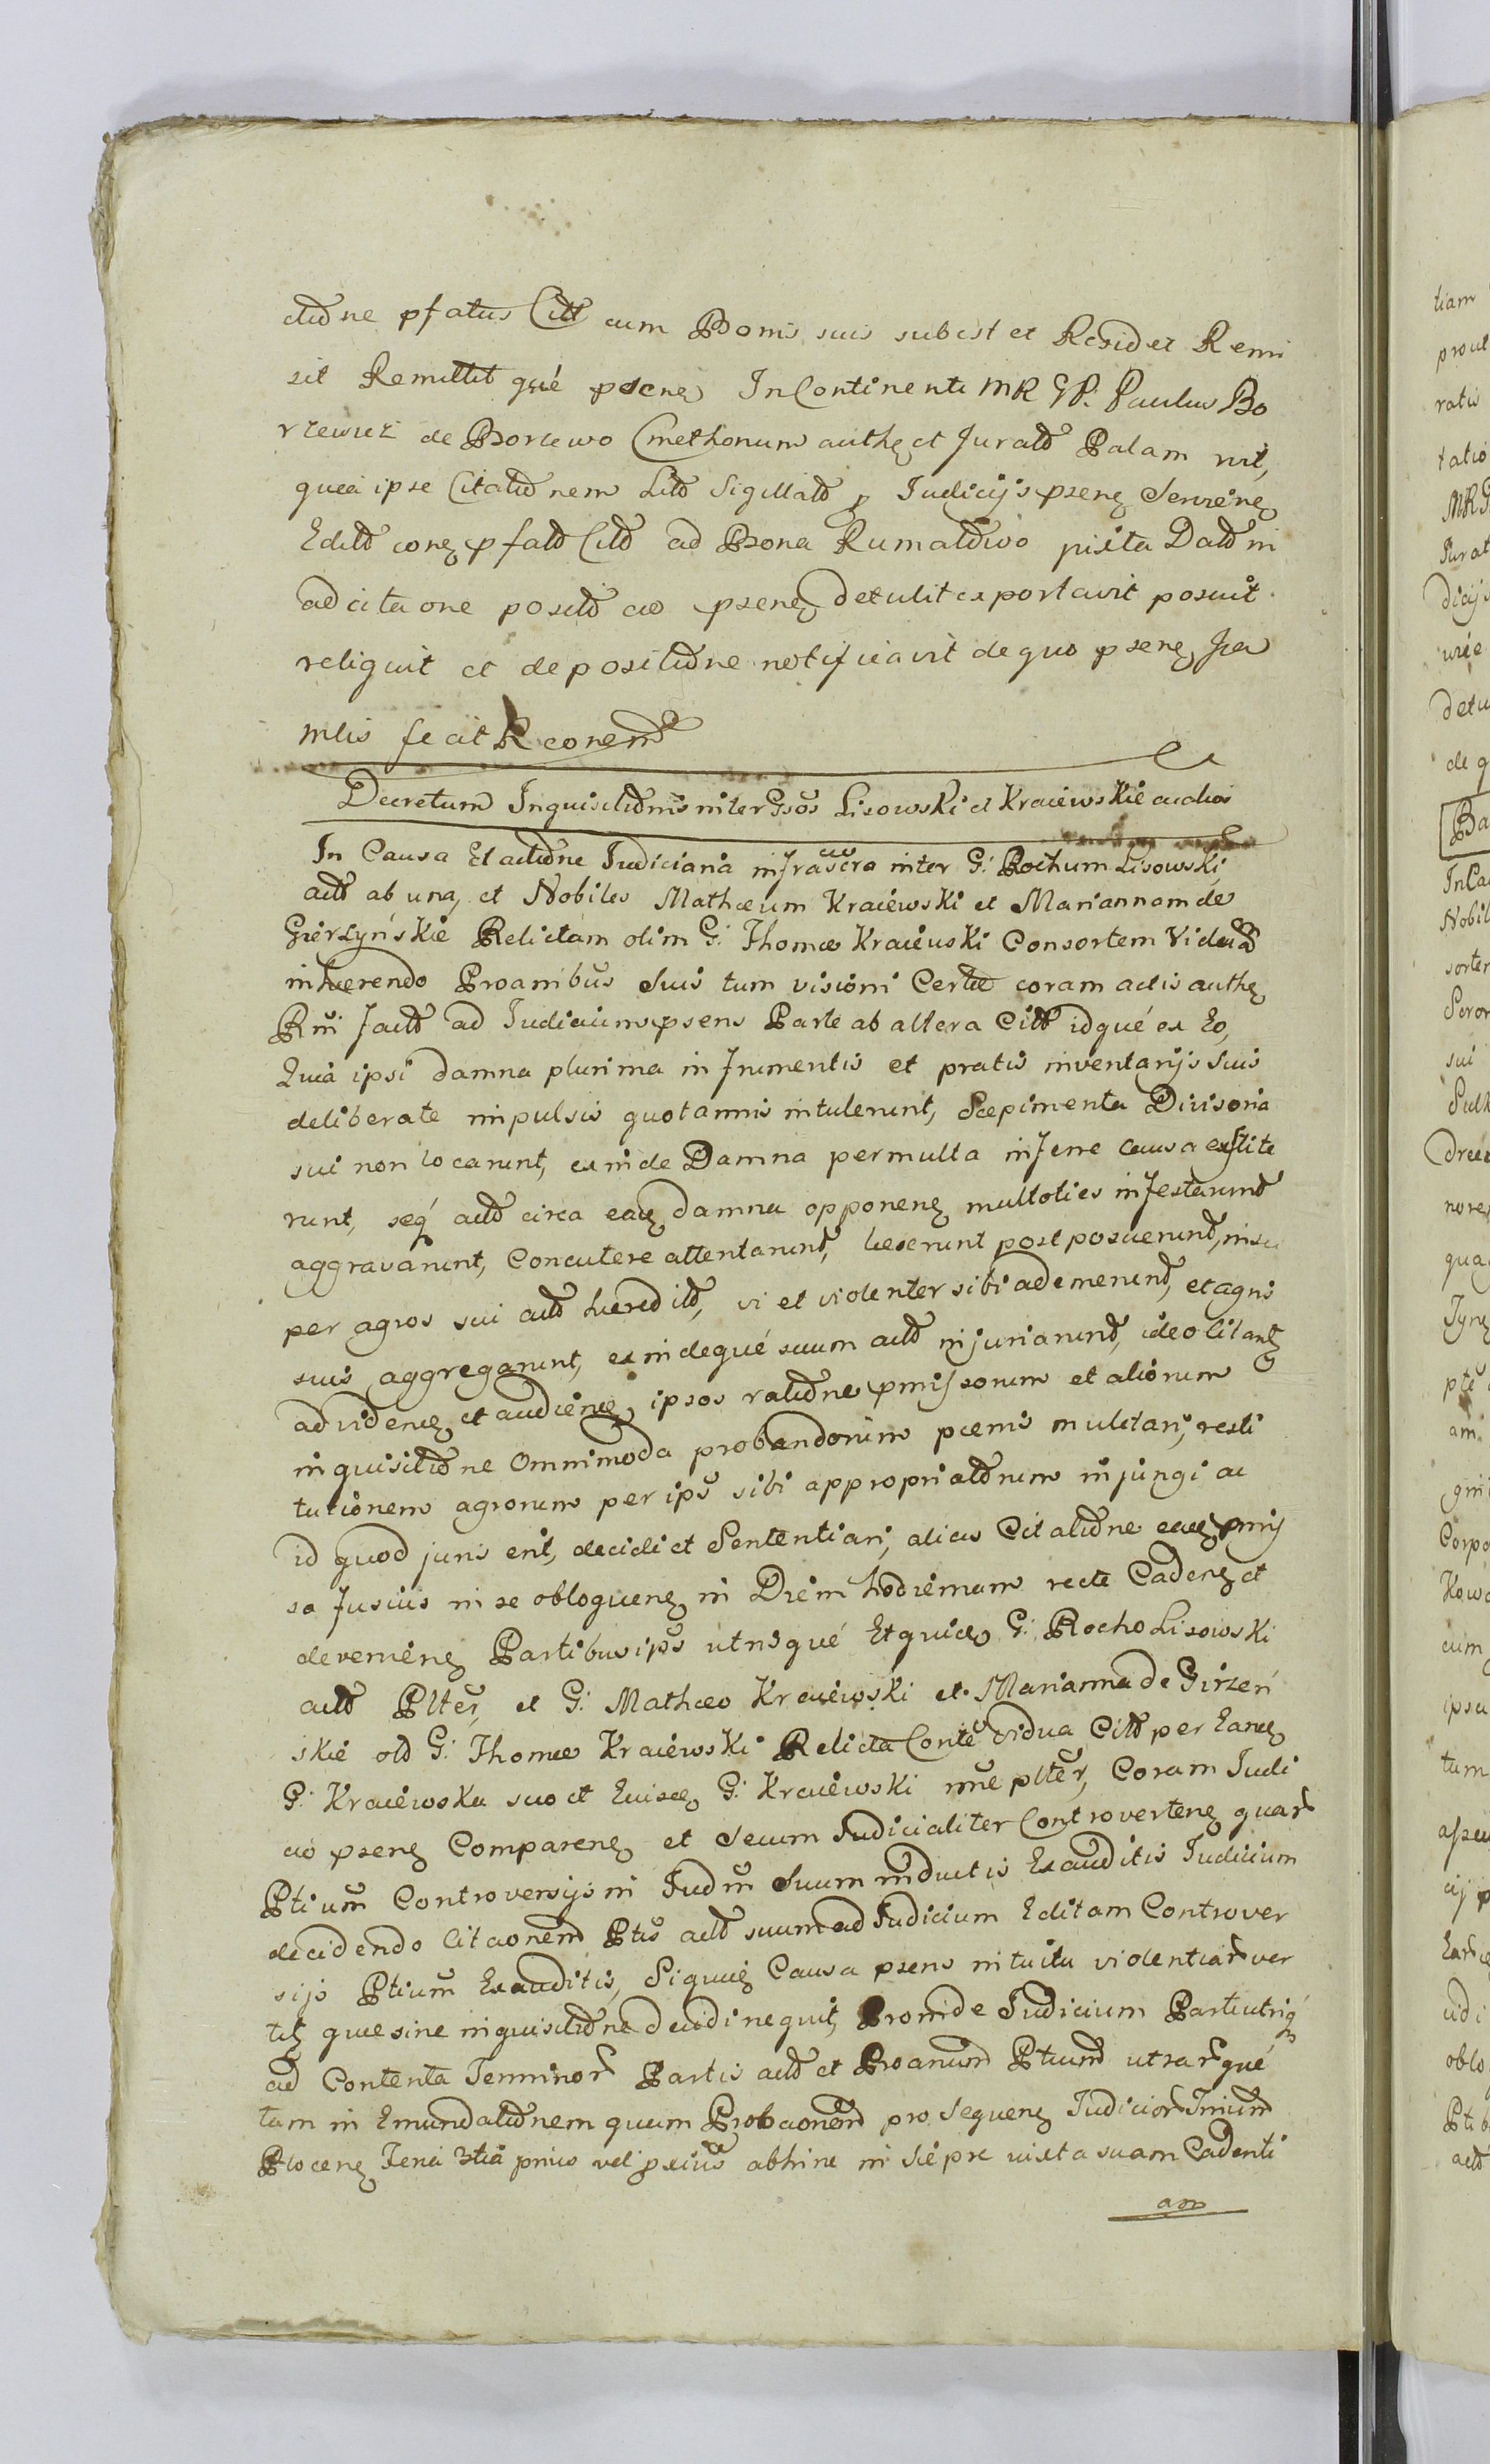 ctione pfatus Citt cum Bonis suis subest et Residet Remi
sit Remittit qué psene InContinenti MR GP: Paulus Bo
rzewicz de Borcewo Cmethonum authe et Jurato Palam rut,
quia ipse Citationem Litt Sigillato p Judicijs psene Serviene
Edito cone pfato Cito ad Bona Rumaldwo pixta Dato in
ad cita one posito ao psene detulit exportavit posuit
reliquit et depositione notificavit de quo psene Jea
mlis fecit Rconem
Decretum Inquisitionis inter Gsos Lisowski et Kraiewskie audios
In Causa Et actione Judiciaria infrascra inter G: Rochum Lisowski
actt ab una, et Nobiles Mathæum Kraiéwski et Mariannam de
Gierżyńskie Relictam olim G: Thomæ Kraiéwski Consortem Viduã
inhærendo Proanibus Suis tum visioni Certæ coram actis authe
Rni factt ad Judicium psens Parte ab altera Citt idqué ex Eo,
Quia ipsi damna plurima in frumentis et pratis inventarijs suis
deliberate impulsis quotannis intulerunt, Sæpimenta Divisoria
sui non locarunt, exinde Damna permulta inferre causa exstite
runt, seq́ actt circa eade damna opponene multoties infestarunt
aggravarunt, Concutere attentarunt, læserunt postposuerunt, insu
per agros sui actt hæredito, vi et violenter sibi ademerunt, et agris
suis aggregarunt, exindequé suum actt injuriarunt, ideo litante
ad vidence et audience, ipsos ratione pmissorum et aliorum
inquisitione Omnimoda probandorum pœnis mulctari, resti
tutionem agrorum per ips sibi appropriatorum injungi ac
id quod juris erit, decidi et Sententiari, alias Citatione eade pmis
sa fusius in se obloquene in Diem hodiernum recte Cadene et
deveniene Partibus ips utrisqué Et quide G: Rocho Lisowski
actt Plter, et G: Mathæo Kraiéwski et Marianna de Girżeń
skie old G: Thomæ Kraiéwski Relicta Conte vidua Citt per Eande
G: Kraiéwska suo et Eiusde G: Kraiéwski nne plter, Coram Judi
cio psene Comparene et Secum Judicialiter Controvertene quar
Ptium Controversijs in Judm Suum inductis Exauditis Judicium
decidendo Citaonem Ptis actt suum ad Judicium Editam Controver
sijs Ptium Exauditis, Siquide Causa psens intuitu violentiar ver
tit quæ sine inquisitione decidi nequit, Proinde Judicium Parti utriq́
ad Contenta Terminor Partis actt et Proanum Ptium utrarqué
tam in Emundationem quam Probaonem pro sequene Judicior Tmium
Plocene Feria 3tia prius vel pxius abhinc in Sie pre iuxta suam Cadenti
am